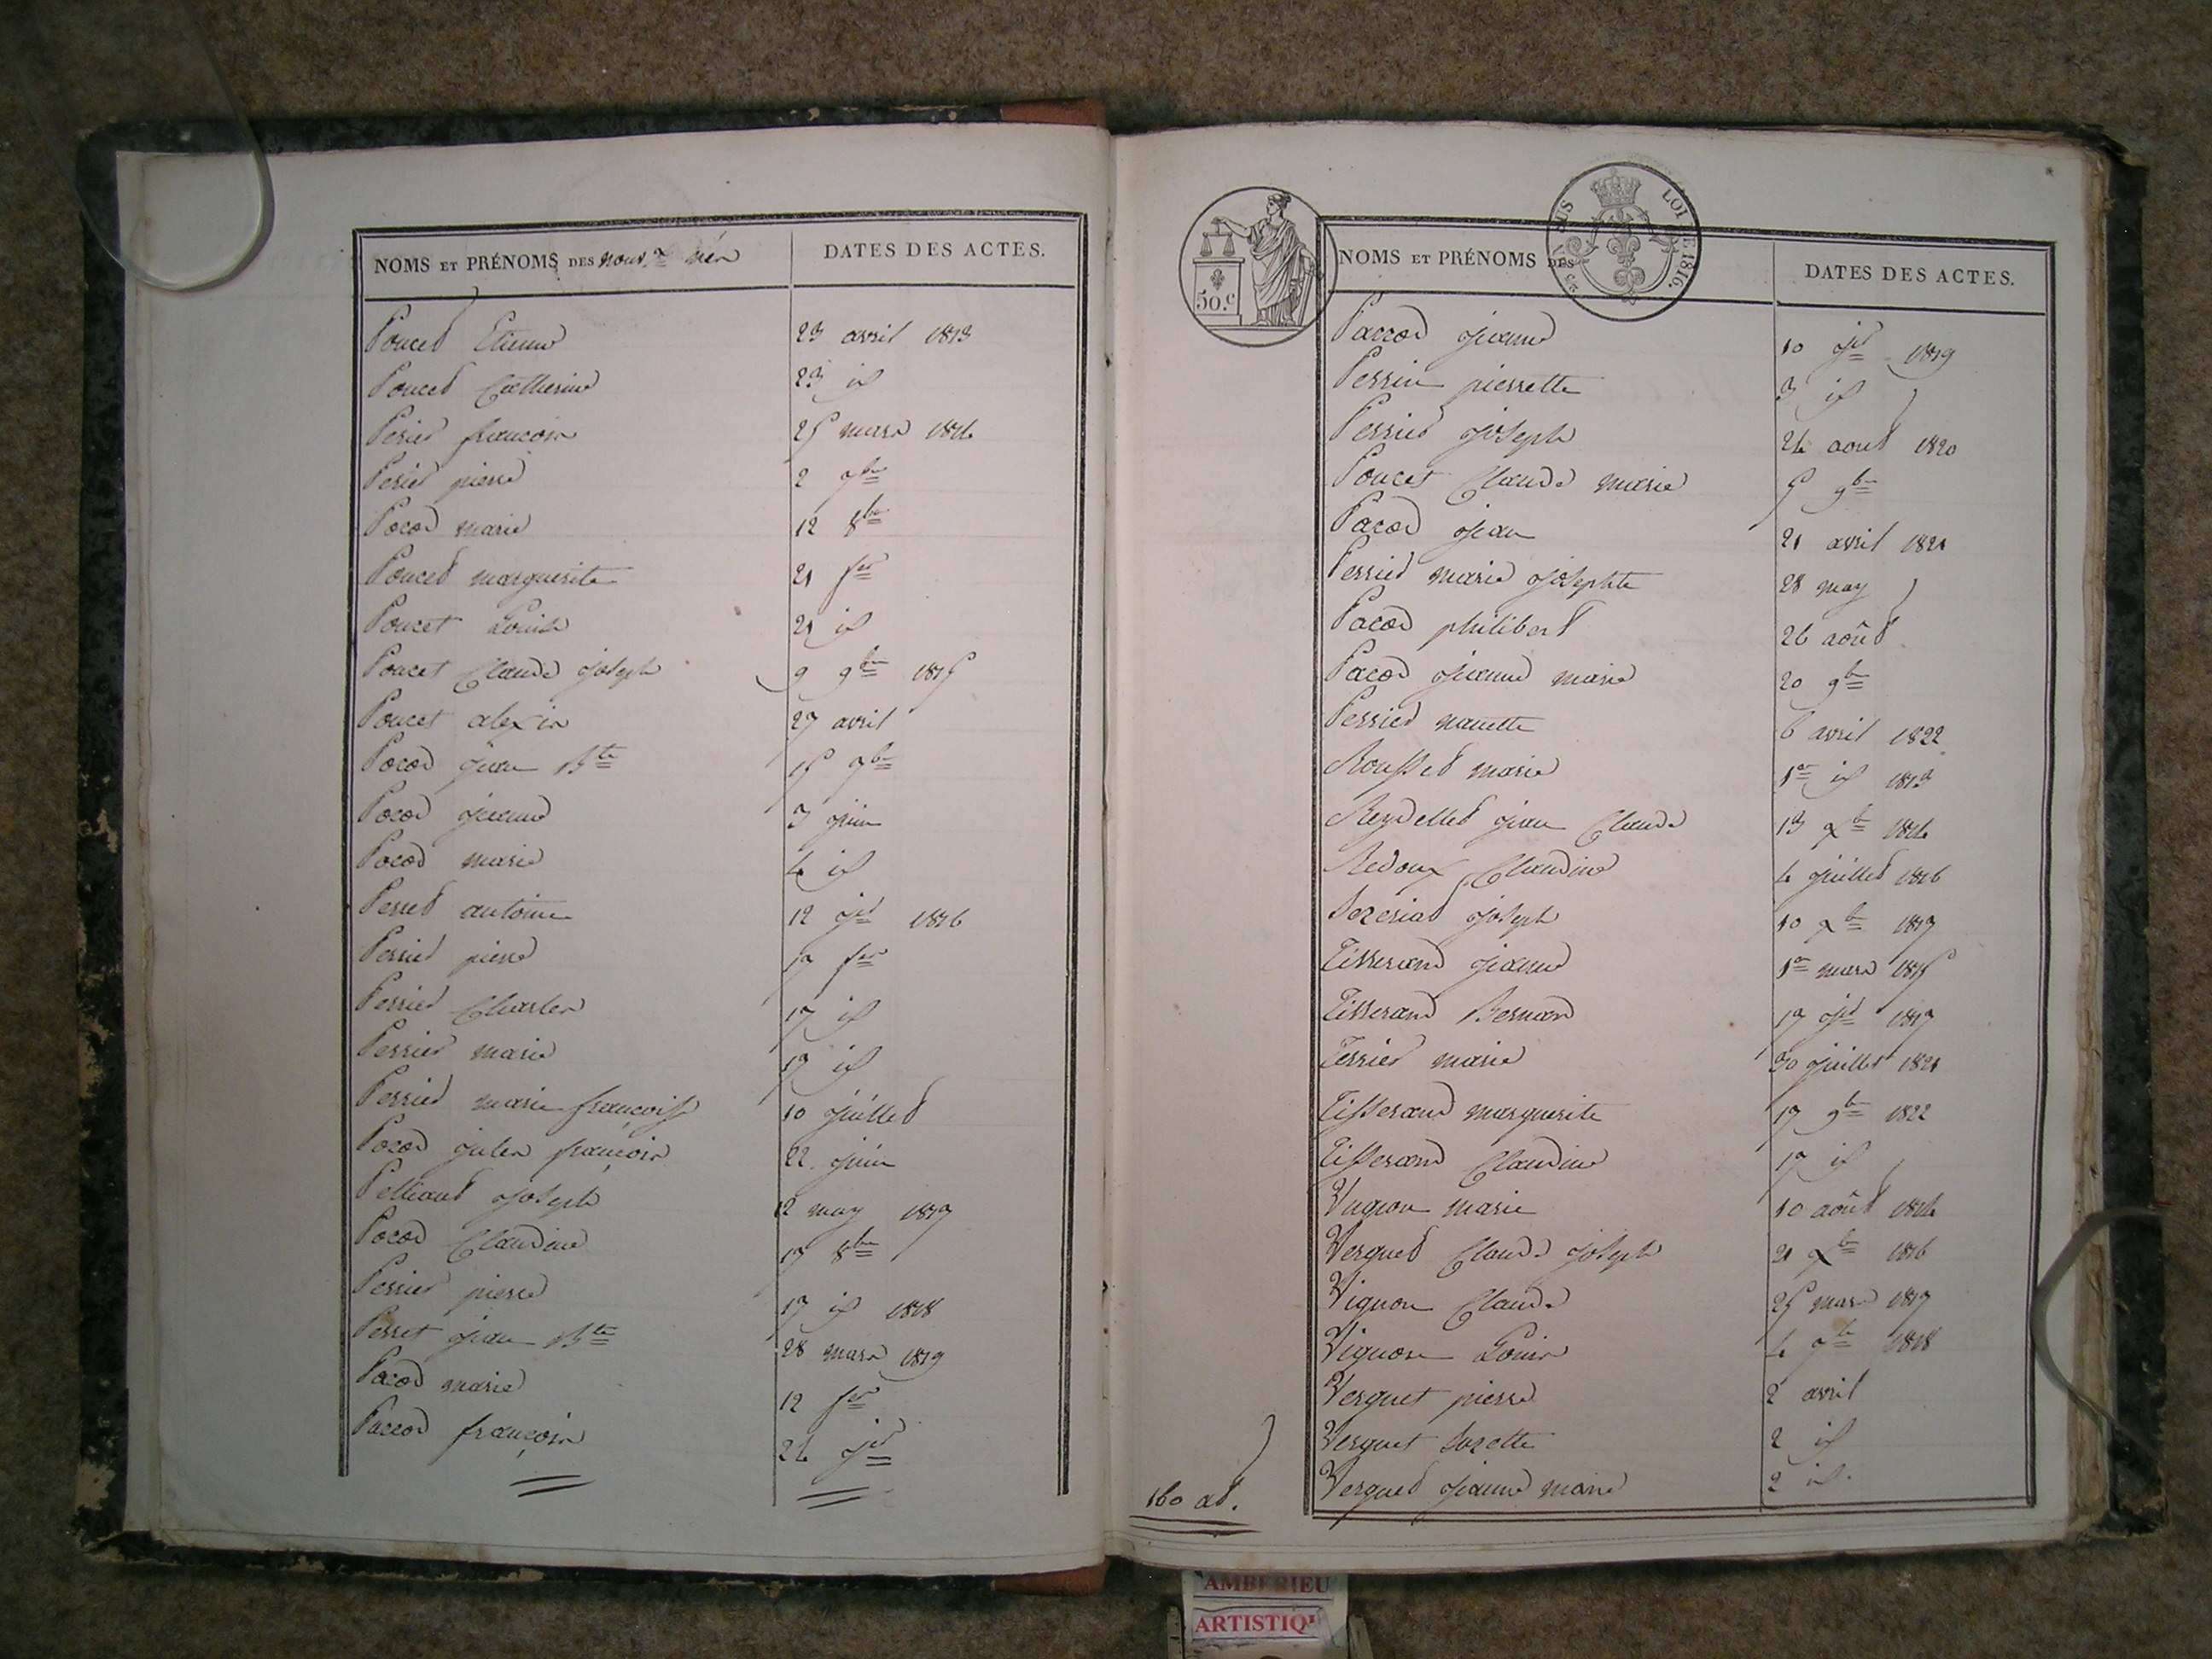 NOMS ET PRÉNOMS DES nouv.x nés DATES DES ACTES.
Poncet Etienne 23 avril 1813
Poncet Catherine 23 id
Perier françois 25 mars 1814
Perier pierre 2 7bre
Pocod marie 12 8bre
Poncet marguerite 21 fer
Poncet Louise 21 id
Poncet Claude joseph 9 9bre 1815
Poncet alexis 27 avril
Pocod jean Bte 15 7bre
Pocod jeanne 3 juin
Pocod marie 4 id
Perret antoine 12 jer 1816
Perrier pierre 17 fer
Perrier Charles 17 id
Perrier marie 17 id
Perrier marie françoise 10 juillet
Pocod jules françois 22 juin
joseph 12 may 1817
Pocod Claudine 17 8bre
Perrier pierre 17 id 1818
Perret jean Bte 28 mars 1819
Pacod marie 12 fer
Paccod françois 24 jer
50.c
LOI DE 1816.
NOMS ET PRÉNOMS DES DATES DES ACTES.
Paccod jeanne 10 jer 1819
Perrin pierrette 3 id
Perrier joseph 24 aout 1820
Poncet Claude marie 5 9bre
Pacod jean 21 avril 1821
Perrier marie josephte 28 may
Pacod philibert 26 août
Pacod jeanne marie 20 9bre
Perrier nanette 6 avril 1822
Rousset marie 1er id 1813
Reydellet jean Claude 13 Xbre 1814
Redoux Claudine 4 juillet 1816
Sezeriat joseph 10 Xbre 1817
Tisserand jeanne 1er mars 1815
Tisserand Bernard 17 jer 1817
Terrier marie 30 juillet 1821
Tisserand marguerite 17 9bre 1822
Tisserand Claudine 17 id
marie 10 août 1814
Verguet Claude joseph 21 Xbre 1816
Vignon Claude 25 mars 1817
Vignon Louis 4 7bre 1818
Verguet pierre 2 avril
Verguet Suzette 2 id
Verguet jeanne marie 2 id.
160 at.
AMBERIEU
ARTISTIQ